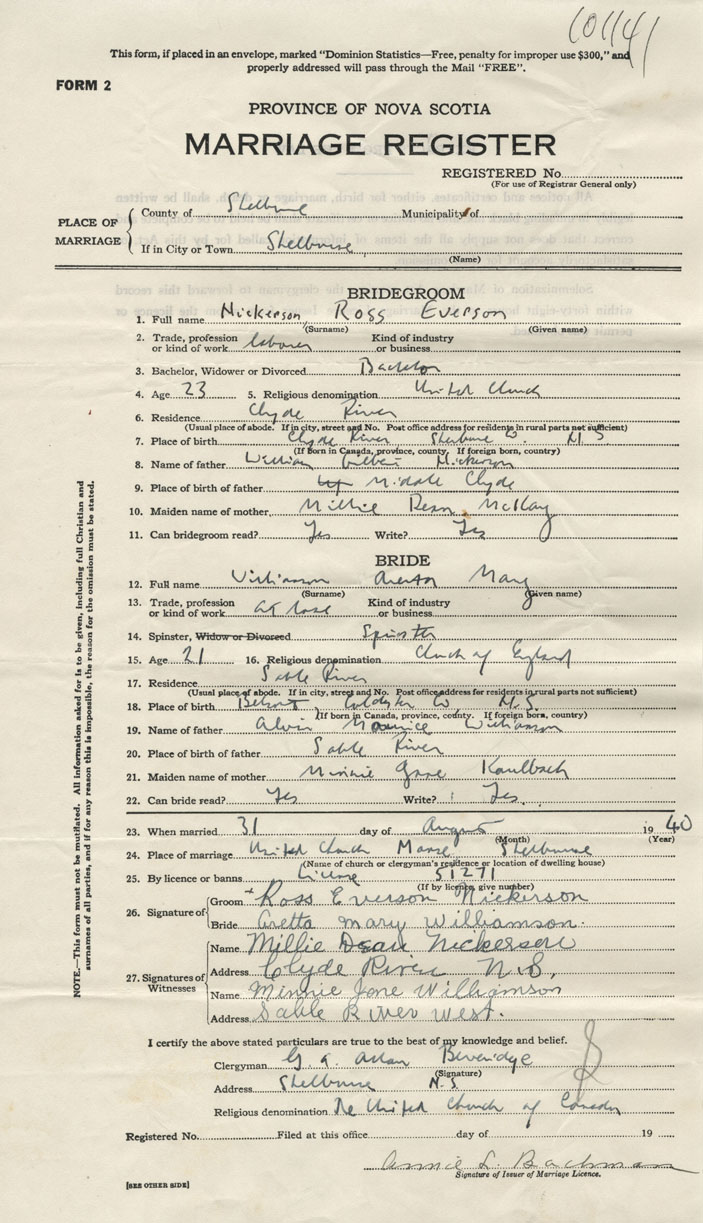 101141
This form, if placed in an envelope, marked "Dominion Statistics—Free, penalty for improper use $300," and
properly addressed will pass through the Mail "FREE".
FORM 2
PROVINCE OF NOVA SCOTIA
MARRIAGE REGISTER
REGISTERED No.
(For use of Registrar General only)
PLACE OF MARRIAGE
County of Shelburne Municipality of
If in City or Town Shelburne
(Name)
BRIDEGROOM
1. Full name Nickerson, Ross Everson
(Surname) (Given name)
2. Trade, profession or kind of work laborer Kind of industry or business
3. Bachelor, Widower or Divorced Bachelor
4. Age 23 5. Religious denomination United Church
6. Residence Clyde River
(Usual place of abode. If in city, street and No. Post office address for residents in rural parts not sufficient)
7. Place of birth Clyde River Shelburne Co. N.S
(If Born in Canada, province, county. If foreign born, country)
8. Name of father William Gilbert Nickerson
9. Place of birth of father Middle Clyde
10. Maiden name of mother Millie Dean McKay
11. Can bridegroom read? Yes Write? Yes
BRIDE
12. Full name Williamson Mary
(Surname) (Given name)
13. Trade, profession or kind of work at home Kind of industry or business
14. Spinster, Widow or Divorced Spinster
15. Age 21 16. Religious denomination Church of England
17. Residence Sable River
(Usual place of abode. If in city, street and No. Post office address for residents in rural parts not sufficient)
18. Place of birth Belmont, Colchester Co N.S.
(If born in Canada, province, county. If foreign born, country)
19. Name of father Alvin Maurice Williamson
20. Place of birth of father Sable River
21. Maiden name of mother Minnie Jane Kaulback
22. Can bride read? Yes Write? Yes
23. When married 31 day of August 1940
(Month) (Year)
24. Place of marriage United Church Manse Shelburne
(Name of church or clergyman's residence or location of dwelling house)
25. By licence or banns License 51271
(If by licence, give number)
26. Signature of
Groom Ross Everson Nickerson
Bride Aretta Mary Williamson.
27. Signatures of Witnesses
Name Millie Dean Nickerson
Address Clyde River N.S.
Name Minnie Jane Williamson
Address Sable River West.
I certify the above stated particulars are true to the best of my knowledge and belief.
Clergyman G. A. Allan Beveridge
(Signature)
Address Shelburne N.S
Religious denomination The United Church of Canada
Registered No. Filed at this office day of 19
Annie L. Bachman
Signature of Issuer of Marriage Licence.
[SEE OTHER SIDE]
NOTE.—This form must not be mutilated. All information asked for is to be given, including full Christian and
surnames of all parties, and if for any reason this is impossible, the reason for the omission must be stated.